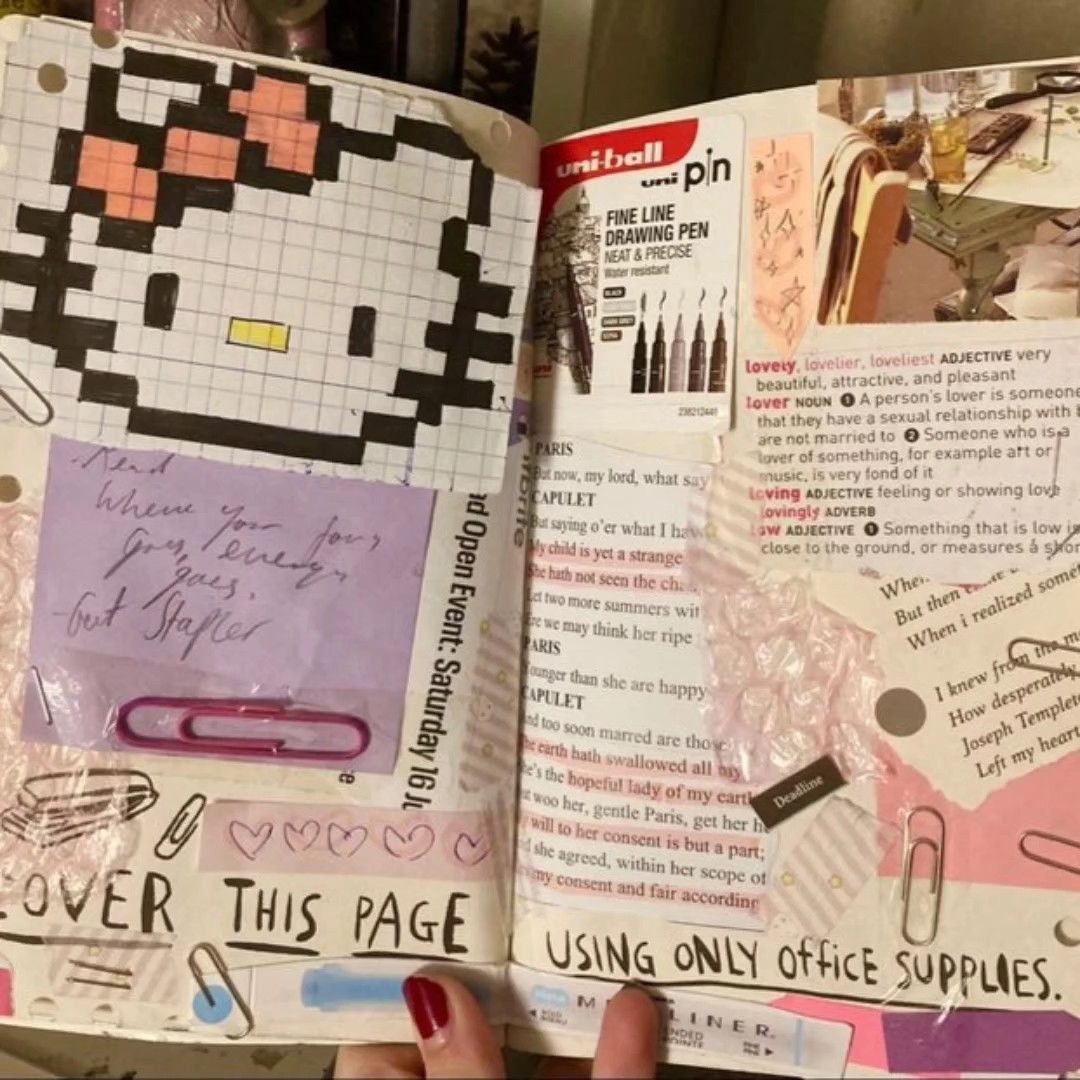 Where your
goes,
goes.
Stapler
Open Event: Saturday 16
COVER THIS PAGE
uni-ball
uni pin
FINE LINE
DRAWING PEN
NEAT & PRECISE
Water resistant
238212441
PARIS
But now, my lord, what say
CAPULET
But saying o'er what I hav
My child is yet a strange
She hath not seen the cha
Let two more summers wit
Ere we may think her ripe
PARIS
Younger than she are happy
CAPULET
And too soon marred are those
The earth hath swallowed all my
She's the hopeful lady of my earth
But woo her, gentle Paris, get her h
My will to her consent is but a part;
And she agreed, within her scope of
my consent and fair according
lovely, lovelier, loveliest ADJECTIVE very
beautiful, attractive, and pleasant
lover NOUN ❶ A person's lover is someone
that they have a sexual relationship with b
are not married to ❷ Someone who is a
lover of something, for example art or
music, is very fond of it
loving ADJECTIVE feeling or showing love
lovingly ADVERB
low ADJECTIVE ❶ Something that is low is
close to the ground, or measures a short
When
But then
When i realized somet
I knew from the mo
How desperately
Joseph Templeto
Left my heart
Deadline
USING ONLY OFFICE SUPPLIES.
LINER